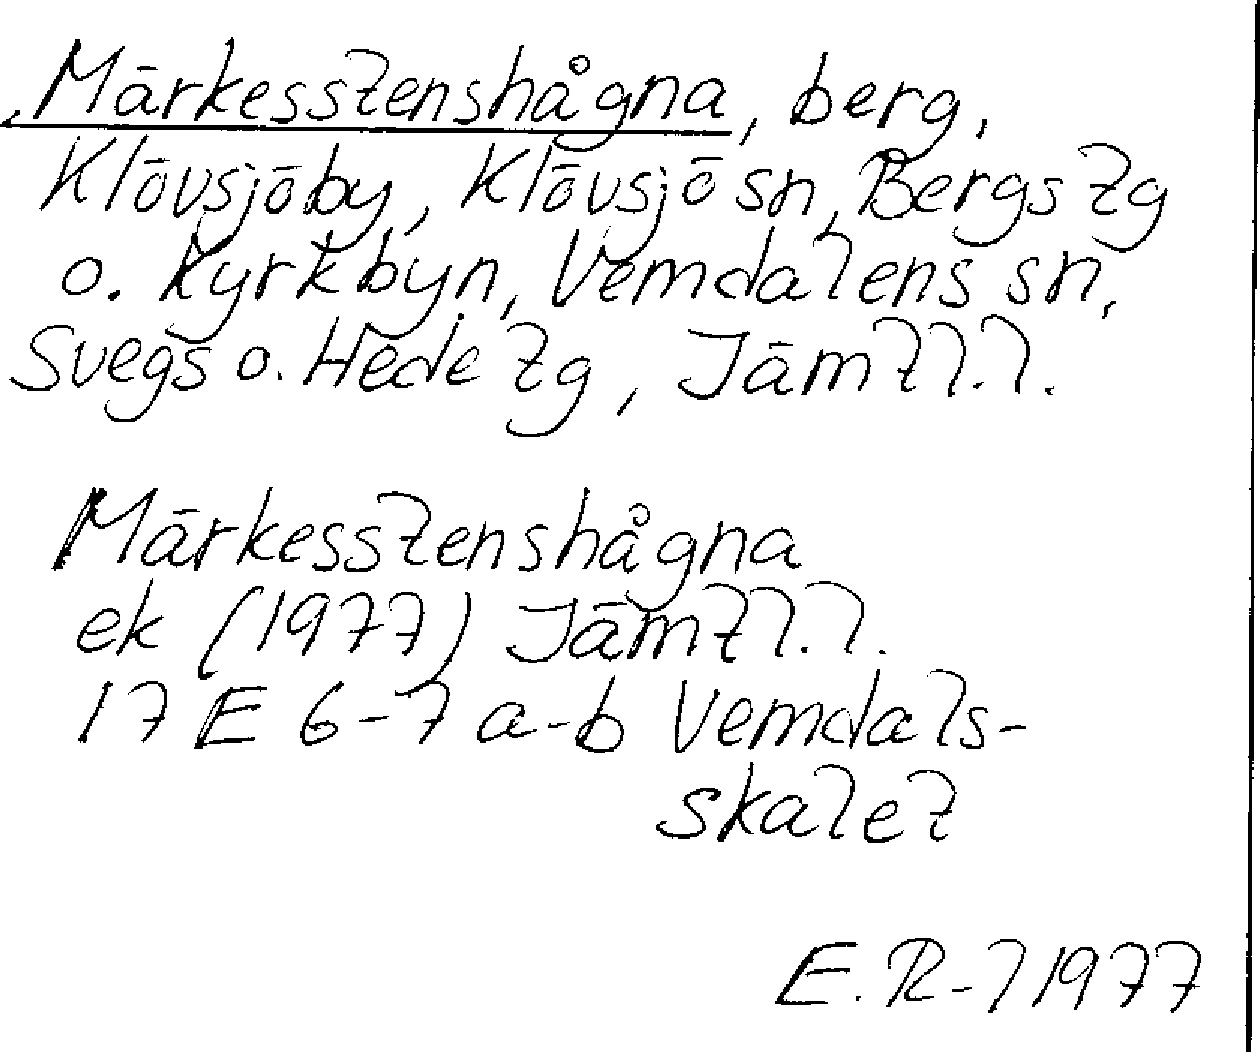 Märkesstenshågna, berg,
Klövsjöby, Klövsjö sn, Bergs tg
o. Kyrkbyn, Vemdalens sn,
Svegs o. Hede tg, Jämtl.l.
Märkesstenshågna
ek (1977) Jämtl.l.
17 E 6-7 a-b Vemdals-
skalet
E. R-l 1977